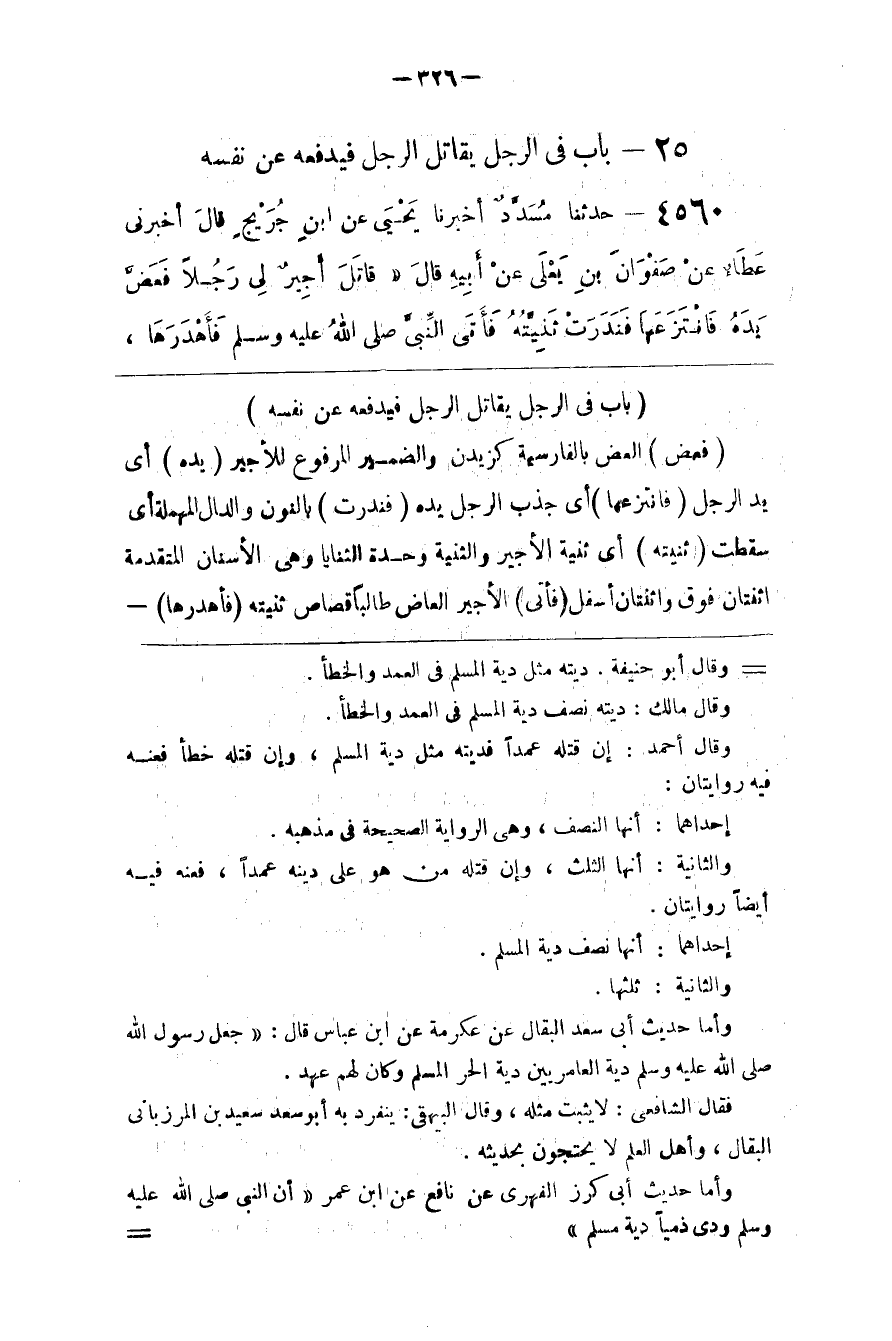 — ٣٢٦ —
٢٥ — باب فى الرجل يقاتل الرجل فيدفعه عن نفسه
٤٥٦٠ — حدثنا مُسَدَّدٌ أخبرنا يَحْيَى عن ابنِ جُرَيْجٍ قالَ أخبرنى
عَطَاءٌ عنْ صَفْوَانَ بنِ يَعْلَى عنْ أَبِيهِ قالَ « قاتَلَ أَجِيرٌ لِى رَجُـلاً فَعَضَّ
يَدَهُ فَانْتَزَعَهَا فَنَدَرَتْ ثَنِيَّتُهُ فَأَتَى النَّبِىَّ صلى اللهُ عليه وسـلم فَأَهْدَرَهَا ،
( باب فى الرجل يقاتل الرجل فيدفعه عن نفسه )
( فعض ) العض بالفارسية كزيدن والضمير المرفوع للأجير ( يده ) أى
يد الرجل ( فانتزعها ) أى جذب الرجل يده ( فندرت ) بالنون والدال المهملة أى
سقطت ( ثنيته ) أى ثنية الأجير والثنية وحـدة الثنايا وهى الأسنان المتقدمة
اثنتان فوق واثنتان أسفل (فأتى) الأجير العاض طالباً قصاص ثنيته (فأهدرها) —
= وقال أبو حنيفة . ديته مثل دية المسلم فى العمد والخطأ .
وقال مالك : ديته نصف دية المسلم فى العمد والخطأ .
وقال أحمد : إن قتله عمداً فديته مثل دية المسلم ، وإن قتله خطأ فعنـه
فيه روايتان :
إحداهما : أنها النصف ، وهى الرواية الصحيحة فى مذهبه .
والثانية : أنها الثلث ، وإن قتله من هو على دينه عمداً ، فعنه فيـه
أيضاً روايتان .
إحداهما : أنها نصف دية المسلم .
والثانية : ثلثها .
وأما حديث أبى سعد البقال عن عكرمة عن ابن عباس قال : « جعل رسول الله
صلى الله عليه وسلم دية العامريين دية الحر المسلم وكان لهم عهد .
فقال الشافعى : لايثبت مثله ، وقال البيهقى : ينفرد به أبو سعد سعيد بن المرزبانى
البقال ، وأهل العلم لا يحتجون بحديثه .
وأما حديث أبى كرز الفهرى عن نافع عن ابن عمر « أن النبى صلى الله عليه
وسلم ودى ذمياً دية مسلم »
=